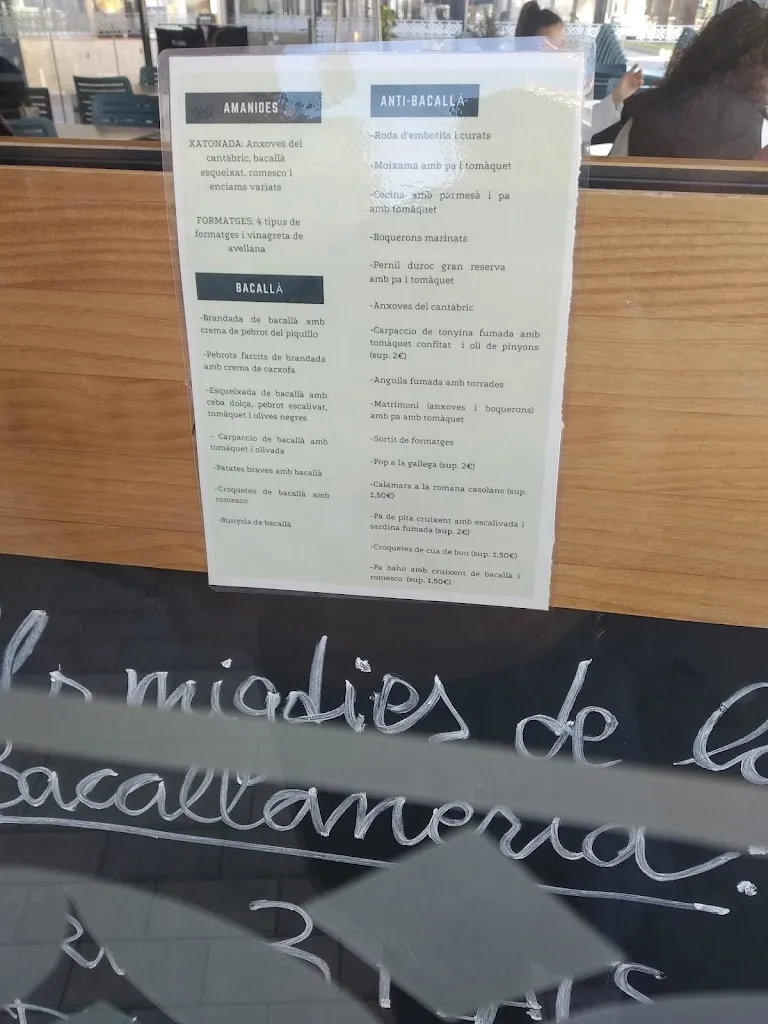 AMANIDES
XATONADA: Anxoves del
cantàbric, bacallà
esqueixat, romesco i
enciams variats
FORMATGES: 4 tipus de
formatges i vinagreta de
avellana
BACALLÀ
-Brandada de bacallà amb
crema de pebrot del piquillo
-Pebrots farcits de brandada
amb crema de carxofa
-Esqueixada de bacallà amb
ceba dolça, pebrot escalivat,
tomàquet i olives negres
- Carpaccio de bacallà amb
tomàquet i olivada
-Patates braves amb bacallà
-Croquetes de bacallà amb
romesco
-Bunyols de bacallà
ANTI-BACALLÀ
-Roda d'embotits i curats
-Moixama amb pa i tomàquet
-Cecina amb parmesà i pa
amb tomàquet
-Boquerons marinats
-Pernil duroc gran reserva
amb pa i tomàquet
-Anxoves del cantàbric
-Carpaccio de tonyina fumada amb
tomàquet confitat i oli de pinyons
(sup. 2€)
-Anguila fumada amb torrades
-Matrimoni (anxoves i boquerons)
amb pa amb tomàquet
-Sortit de formatges
-Pop a la gallega (sup. 2€)
-Calamars a la romana casolans (sup.
1,50€)
-Pa de pita cruixent amb escalivada i
sardina fumada (sup. 2€)
-Croquetes de cua de bou (sup. 1,50€)
-Pa baho amb cruixent de bacallà i
romesco (sup. 1,50€)
Els migdies de la
Bacallaneria: